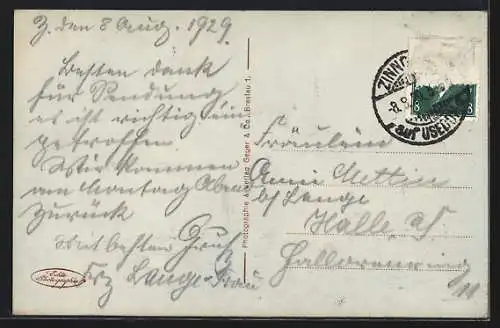 Z. den 8 Aug. 1929
Besten dank
für Sendung
es ist richtig ein
getroffen.
Wir kommen
am Montag Abend
zurück
Mit besten Gruß
Frz Lange u Frau
Echte Photographie
Photographie u. Verlag Geyer & Co., Breslau 1.
ZINNO
-8.8.
auf USEDOM
8 8
Fräulein
Anni
b/ Lange
Halle a/S
Hallorenring
11